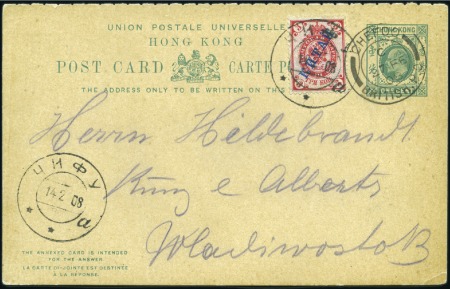 UNION POSTALE UNIVERSELLE
HONG KONG
POST CARD CARTE
THE ADDRESS ONLY TO BE WRITTEN ON THIS
HONGKONG
КИТАЙ
08
a
Herrn Hildebrandt
Kunz e Alberts
Wladiwostok
ЧИФУ
14 2 08
a
THE ANNEXED CARD IS INTENDED
FOR THE ANSWER
LA CARTE CI-JOINTE EST DESTINÉE
À LA RÉPONSE